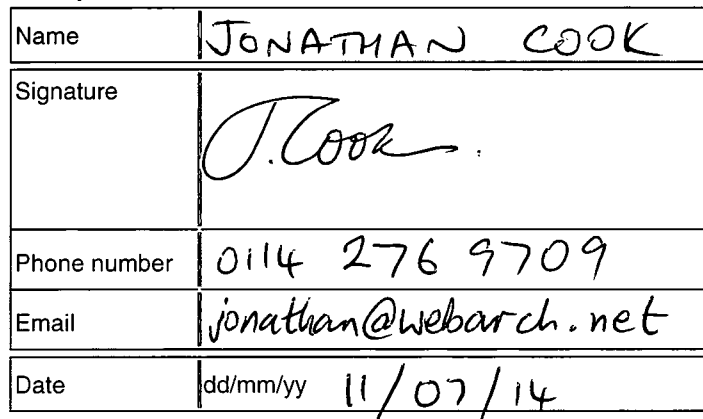 Name JONATHAN COOK
Signature J. Cook.
Phone number 0114 276 9709
Email jonathan@webarch.net
Date dd/mm/yy 11/07/14